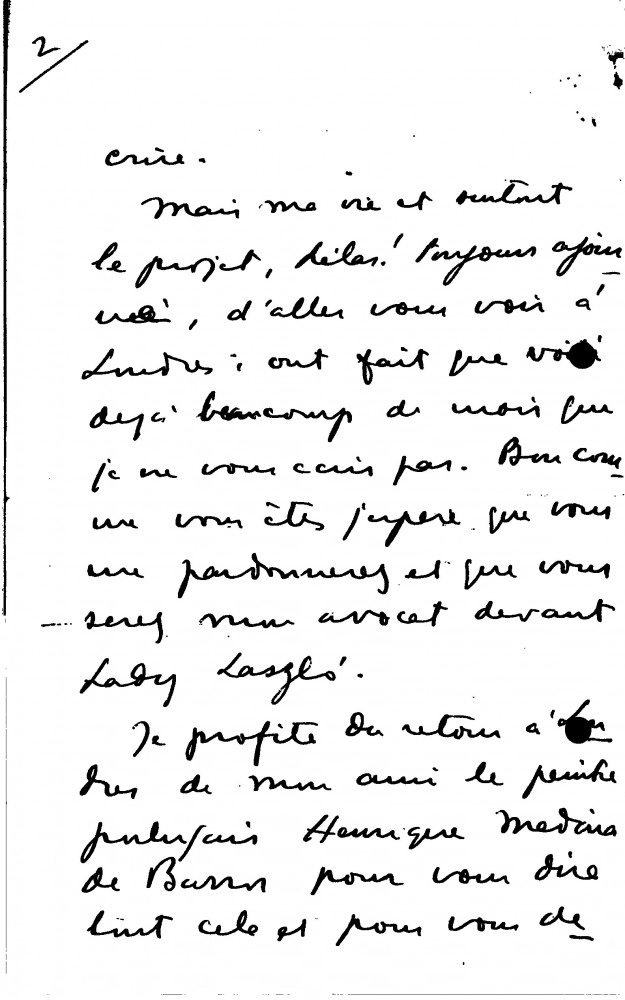 2
crire.
Mais ma vie et surtout
le projet, hélas! toujours ajour
né, d'aller vous voir à
Londres; ont fait que voilà
dejà beaucoup de mois que
je ne vous écris pas. Bon com
me vous êtes j'espere que vous
me pardonnerez et que vous
serez mon avocat devant
Lady Laszló.
Je profite du retour à Lon
dres de mon ami le peintre
portugais Henrique Medina
de Barros pour vous dire
tout cela et pour vous de